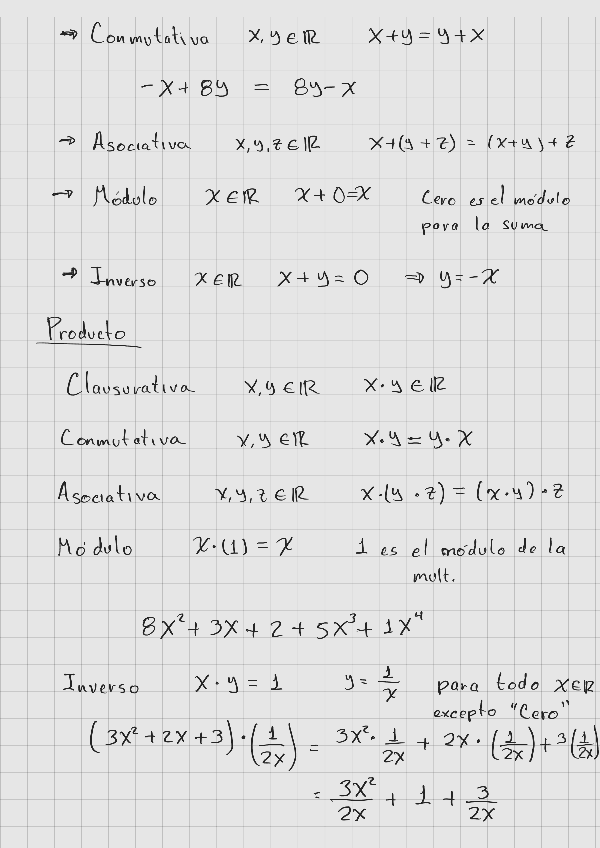 → Conmutativa x, y ∈ ℝ x+y = y+x
-x + 8y = 8y - x
→ Asociativa x, y, z ∈ ℝ x+(y+z) = (x+y)+z
→ Módulo x ∈ ℝ x + 0 = x Cero es el módulo
para la suma
→ Inverso x ∈ ℝ x + y = 0 ⇒ y = -x
Producto
Clausurativa x, y ∈ ℝ x · y ∈ ℝ
Conmutativa x, y ∈ ℝ x·y = y·x
Asociativa x, y, z ∈ ℝ x·(y·z) = (x·y)·z
Módulo x·(1) = x 1 es el módulo de la
mult.
8x² + 3x + 2 + 5x³ + 1x⁴
Inverso x · y = 1 y = 1/x para todo x∈ℝ
excepto "Cero"
(3x² + 2x + 3) · (1/2x) = 3x² · 1/2x + 2x · (1/2x) + 3(1/2x)
= 3x²/2x + 1 + 3/2x